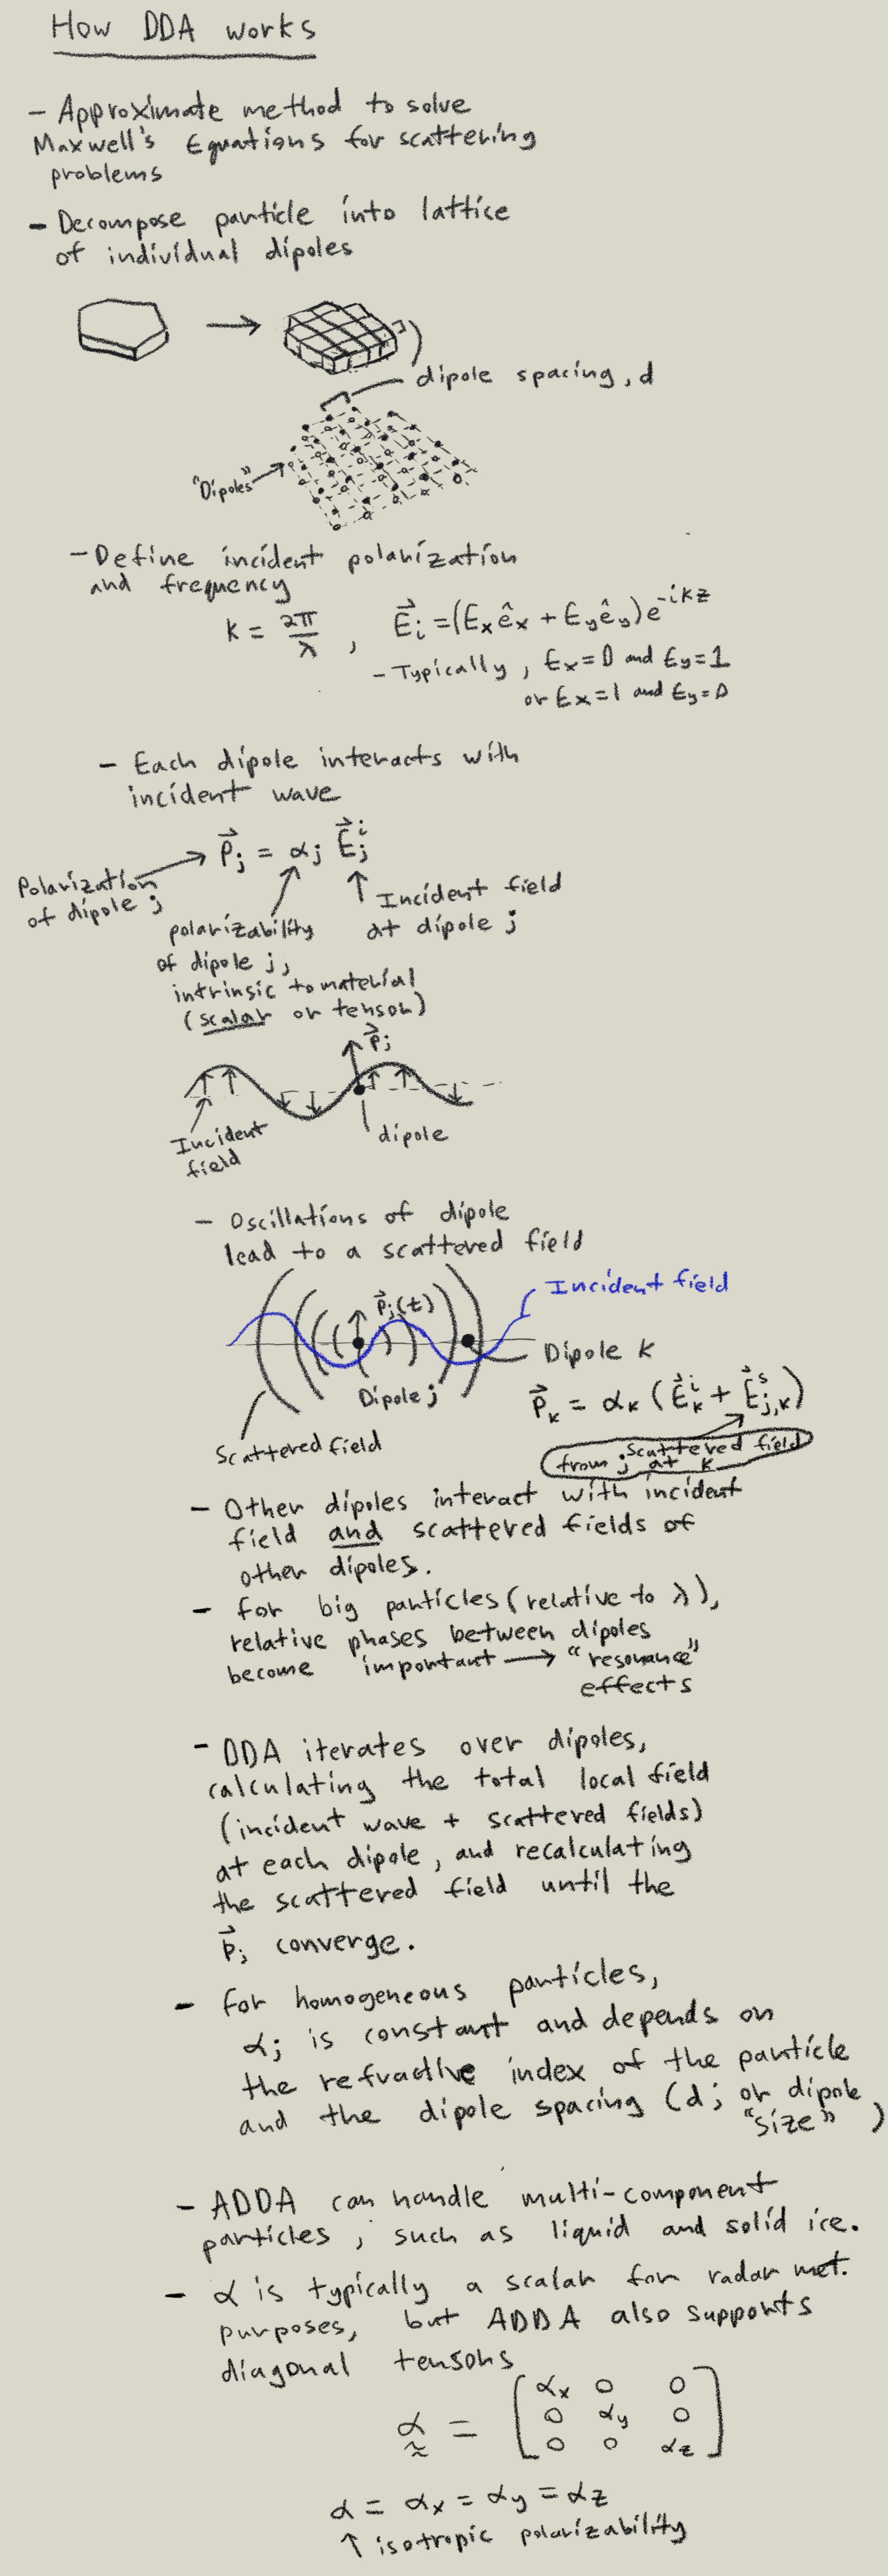 How DDA works
- Approximate method to solve
Maxwell's Equations for scattering
problems
- Decompose particle into lattice
of individual dipoles
dipole spacing, d
"Dipoles"
- Define incident polarization
and frequency
k = 2π/λ , E⃗i = (Ex êx + Ey êy) e^-ikz
- Typically, Ex=0 and Ey=1
or Ex=1 and Ey=0
- Each dipole interacts with
incident wave
P⃗j = αj E⃗j^i
Polarization
of dipole j
Incident field
at dipole j
polarizability
of dipole j,
intrinsic to material
(scalar or tensor)
P⃗j
Incident
field
dipole
- Oscillations of dipole
lead to a scattered field
Incident field
P⃗j(t)
Dipole k
Dipole j
P⃗k = αk (E⃗k^i + E⃗j,k^s)
Scattered field
scattered field
from j at k
- Other dipoles interact with incident
field and scattered fields of
other dipoles.
- for big particles (relative to λ),
relative phases between dipoles
become important → "resonance"
effects
- DDA iterates over dipoles,
calculating the total local field
(incident wave + scattered fields)
at each dipole, and recalculating
the scattered field until the
P⃗j converge.
- for homogeneous particles,
αj is constant and depends on
the refractive index of the particle
and the dipole spacing (d; or dipole
"size")
- ADDA can handle multi-component
particles, such as liquid and solid ice.
- α is typically a scalar for radar met.
purposes, but ADDA also supports
diagonal tensors
αx 0 0
α = 0 αy 0
0 0 αz
α = αx = αy = αz
↑ isotropic polarizability